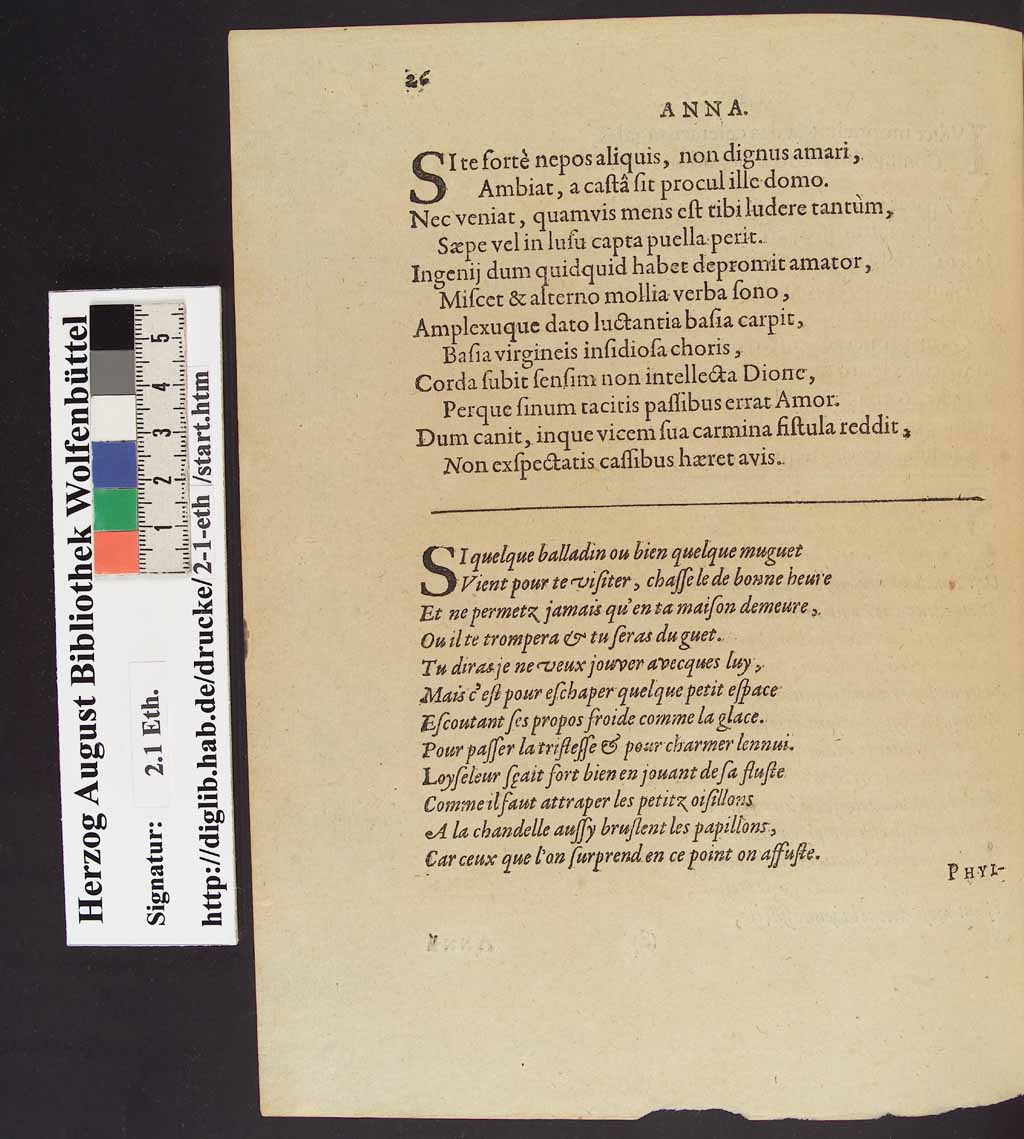 26
ANNA.
SI te fortè nepos aliquis, non dignus amari,
Ambiat, a castâ sit procul ille domo.
Nec veniat, quamvis mens est tibi ludere tantùm,
Sæpe vel in lusu capta puella perit.
Ingenij dum quidquid habet depromit amator,
Miscet & alterno mollia verba sono,
Amplexuque dato luctantia basia carpit,
Basia virgineis insidiosa choris,
Corda subit sensim non intellecta Dione,
Perque sinum tacitis passibus errat Amor.
Dum canit, inque vicem sua carmina fistula reddit,
Non exspectatis cassibus hæret avis.
SI quelque balladin ou bien quelque muguet
Vient pour te visiter, chasse le de bonne heure
Et ne permetz jamais qu'en ta maison demeure,
Ou il te trompera & tu seras du guet.
Tu diras je ne veux jouver avecques luy,
Mais c'est pour eschaper quelque petit espace
Escoutant ses propos froide comme la glace.
Pour passer la tristesse & pour charmer lennui.
Loyseleur sçait fort bien en jouant de sa fluste
Comme il faut attraper les petitz oisillons
A la chandelle aussy bruslent les papillons,
Car ceux que l'on surprend en ce point on affuste.
PHYL-
Herzog August Bibliothek Wolfenbüttel
Signatur: 2.1 Eth.
http://diglib.hab.de/drucke/2-1-eth /start.htm
5
4
3
2
1